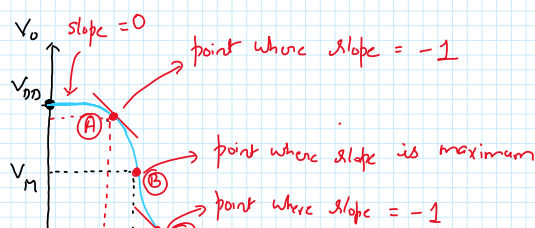 Vo slope = 0
point where slope = -1
VDD
A
point where slope is maximum
VM
B
point where slope = -1